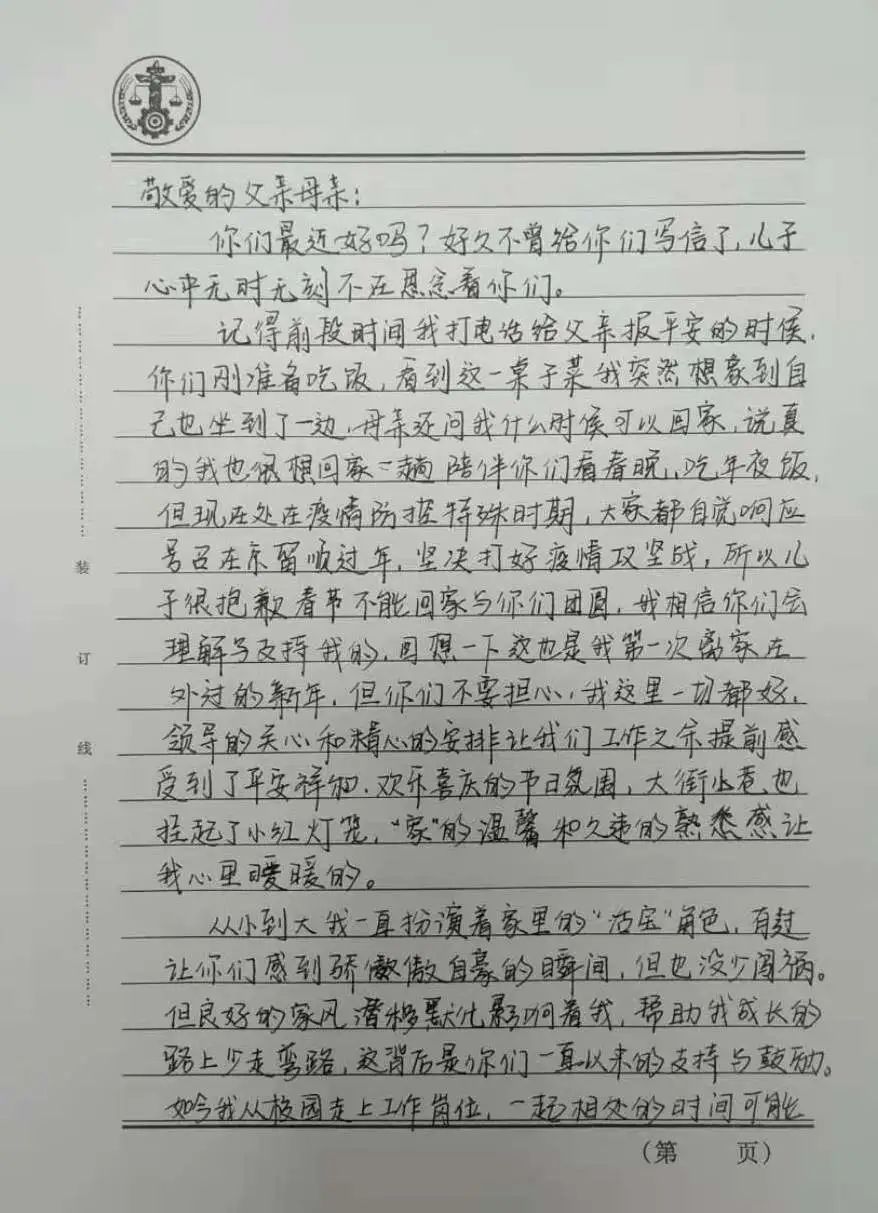 敬爱的父亲母亲:
你们最近好吗?好久不曾给你们写信了,儿子
心中无时无刻不在思念着你们。
记得前段时间我打电话给父亲报平安的时候,
你们刚准备吃饭,看到这一桌子菜我突然想象到自
己也坐到了一边,母亲还问我什么时候可以回家,说真
的我也很想回家一趟陪伴你们看春晚,吃年夜饭,
但现在处在疫情防控特殊时期,大家都自觉响应
号召在京留顺过年,坚决打好疫情攻坚战,所以儿
子很抱歉春节不能回家与你们团圆,我相信你们会
理解与支持我的,回想一下这也是我第一次离家在
外过的新年,但你们不要担心,我这里一切都好,
领导的关心和精心的安排让我们工作之余提前感
受到了平安祥和、欢乐喜庆的节日氛围,大街小巷也
挂起了小红灯笼,“家”的温馨和久违的熟悉感让
我心里暖暖的。
从小到大我一直扮演着家里的“活宝”角色,有过
让你们感到骄傲自豪的瞬间,但也没少闯祸。
但良好的家风潜移默化影响着我,帮助我成长的
路上少走弯路,这背后是你们一直以来的支持与鼓励。
如今我从校园走上工作岗位,一起相处的时间可能
装
订
线
(第 页)